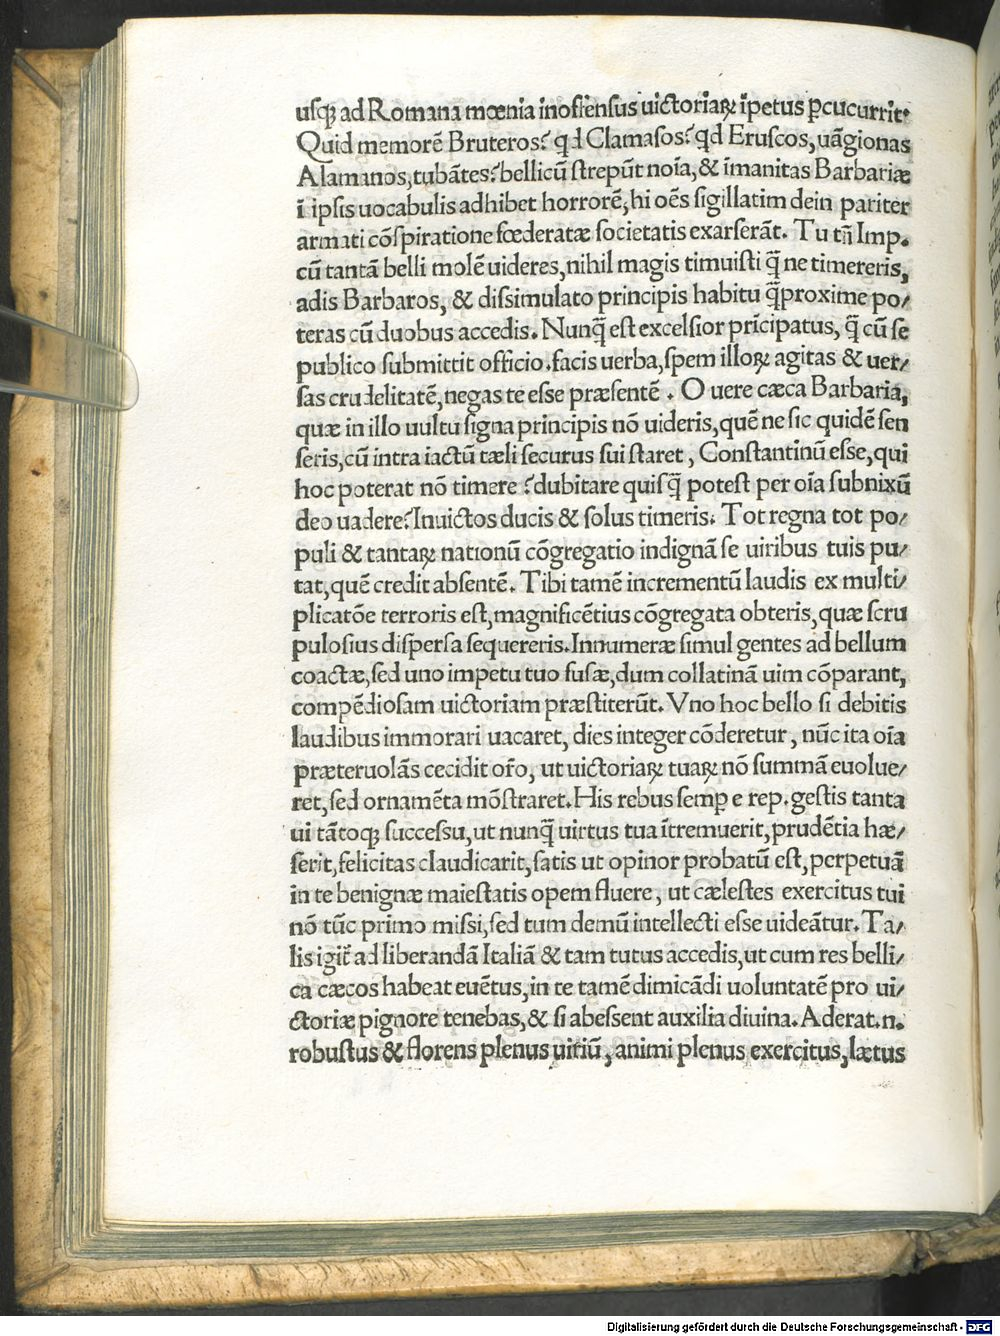 usqꝫ ad Romana mœnia inoffensus uictoriaꝝ ĩpetus ꝑcucurrit.
Quid memorẽ Bruteros? qd Clamasos? qd Eruscos, uãgionas
Alamanos, tubãtes? bellicũ strepũt noĩa, & ĩmanitas Barbariæ
ĩ ipsis uocabulis adhibet horrorẽ, hi oẽs sigillatim dein pariter
armati cõspiratione fœderatæ societatis exarserãt. Tu tñ Imp.
cũ tantã belli molẽ uideres, nihil magis timuisti q̃ ne timereris,
adis Barbaros, & dissimulato principis habitu q̃proxime po/
teras cũ duobus accedis. Nunq̃ est excelsior prĩcipatus, q̃ cũ se
publico submittit officio. facis uerba, spem illoꝝ agitas & uer/
sas crudelitatẽ, negas te esse præsentẽ . O uere cæca Barbaria,
quæ in illo uultu signa principis nõ uideris, quẽ ne sic quidẽ sen
seris, cũ intra iactũ tæli securus sui staret , Constantinũ esse, qui
hoc poterat nõ timere ? dubitare quisq̃ potest per oĩa subnixũ
deo uadere? Inuictos ducis & solus timeris. Tot regna tot po/
puli & tantaꝝ nationũ cõgregatio indignã se uiribus tuis pu/
tat, quẽ credit absentẽ. Tibi tamẽ incrementũ laudis ex multi/
plicatõe terroris est, magnificẽtius cõgregata obteris, quæ scru
pulosius dispersa sequereris. Innumeræ simul gentes ad bellum
coactæ, sed uno impetu tuo fusæ, dum collatinã uim cõparant,
compẽdiosam uictoriam præstiterũt. Vno hoc bello si debitis
laudibus immorari uacaret, dies integer cõderetur , nũc ita oĩa
præteruolãs cecidit oŕo, ut uictoriaꝝ tuaꝝ nõ summã euolue/
ret, sed ornamẽta mõstraret. His rebus semꝑ e rep. gestis tanta
ui tãtoqꝫ successu, ut nunq̃ uirtus tua ĩtremuerit, prudẽtia hæ/
serit, felicitas claudicarit, satis ut opinor probatũ est, perpetuã
in te benignæ maiestatis opem fluere , ut cælestes exercitus tui
nõ tũc primo missi, sed tum demũ intellecti esse uideãtur. Ta/
lis igiť ad liberandã Italiã & tam tutus accedis, ut cum res belli/
ca cæcos habeat euẽtus, in te tamẽ dimicãdi uoluntatẽ pro ui/
ctoriæ pignore tenebas, & si abessent auxilia diuina. Aderat .n.
robustus & florens plenus uiriũ , animi plenus exercitus, lætus
Digitalisierung gefördert durch die Deutsche Forschungsgemeinschaft - DFG